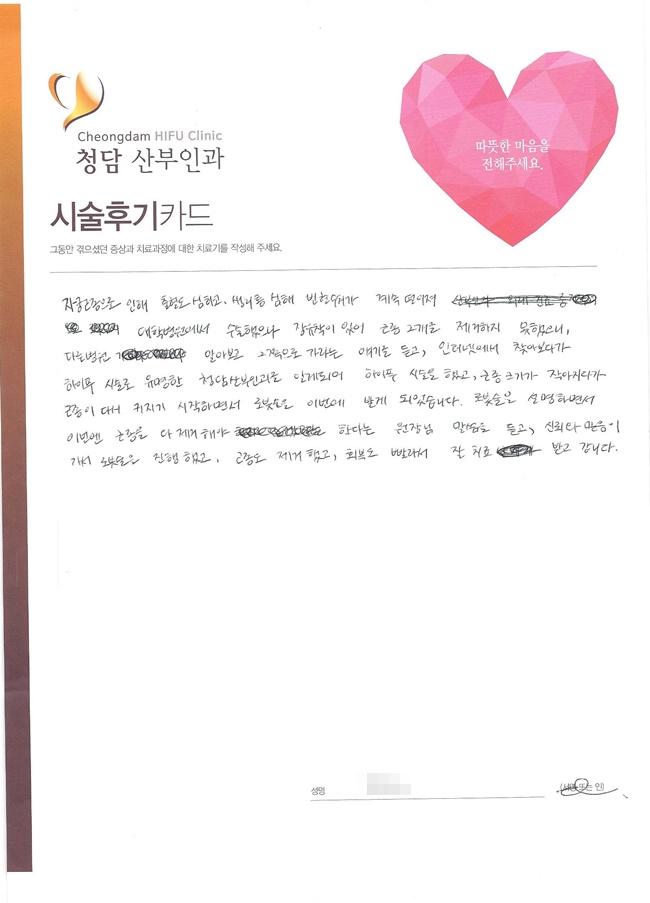 Cheongdam HIFU Clinic
청담 산부인과
따뜻한 마음을
전해주세요.
시술후기카드
그동안 겪으셨던 증상과 치료과정에 대한 치료기를 작성해 주세요.
자궁근종으로 인해 출혈도 심하고, 생리통 심해 빈혈수치가 계속 떨어져
대학병원에서 수술했으나 장유착이 있어 근종 2개를 제거하지 못했으니,
다른병원 알아보고 그쪽으로 가라는 얘기를 듣고, 인터넷에서 찾아보다가
하이푸 시술로 유명한 청담산부인과로 알게되어 하이푸 시술을 했고, 근종 크기가 작아지다가
근종이 다시 커지기 시작하면서 로봇술을 이번에 받게 되었습니다. 로봇술을 설명하면서
이번엔 근종을 다 제거해야 한다는 원장님 말씀을 듣고, 신뢰와 마음이
가서 로봇술을 진행했고, 근종도 제거했고, 회복도 빨라서 잘 치료 받고 갑니다.
성명
(서명 또는 인)